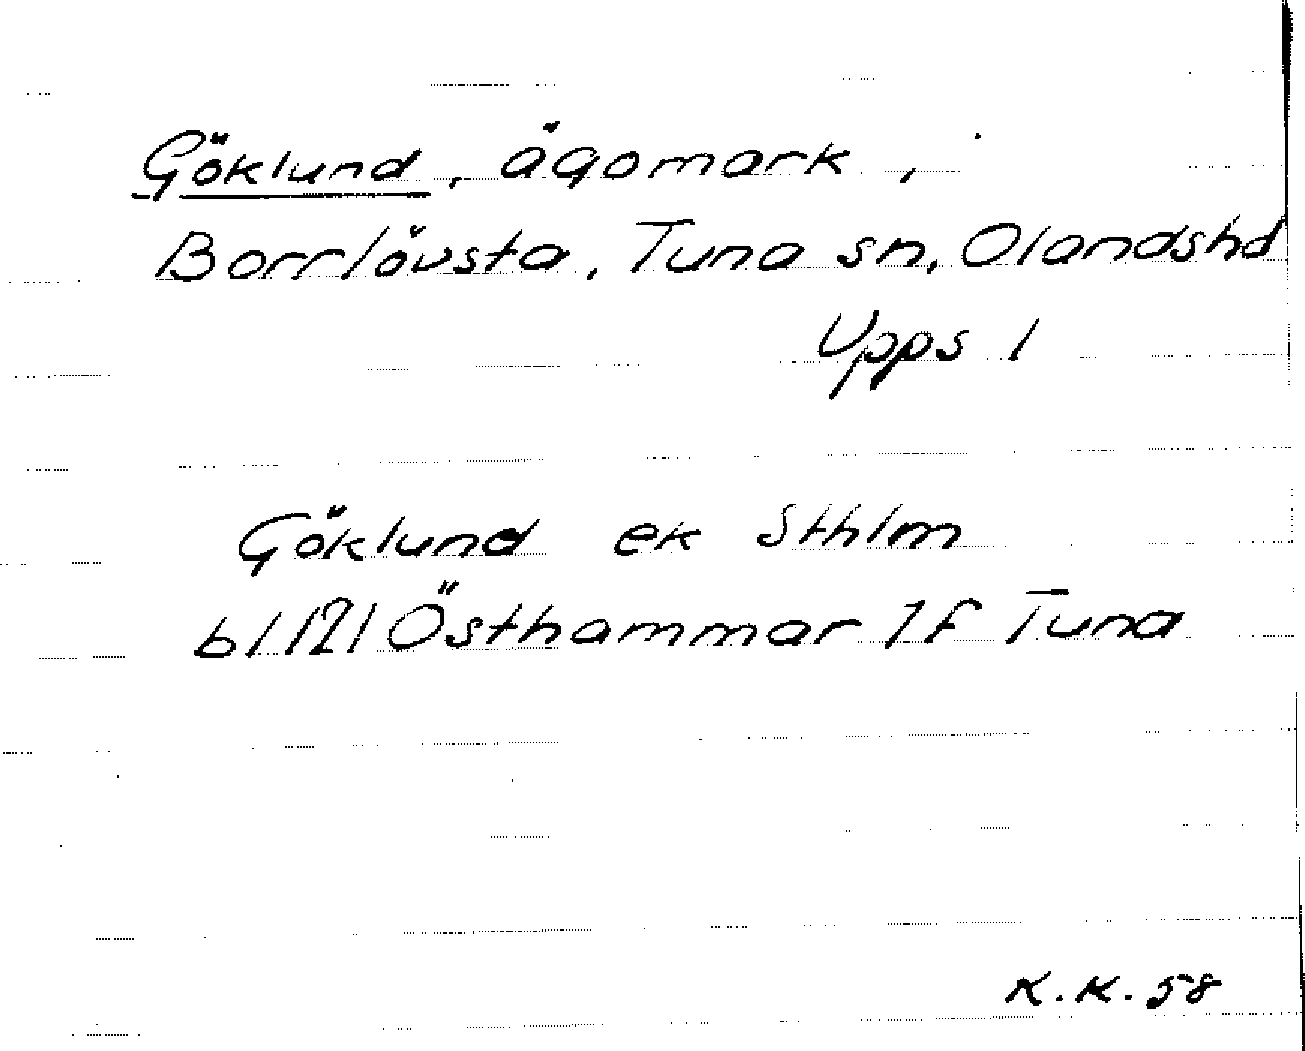 Göklund, ägomark,
Borrlövsta, Tuna sn, Olandshd
Upps l
Göklund ek Sthlm
bl 12I Östhammar 1f Tuna
K.K. 58